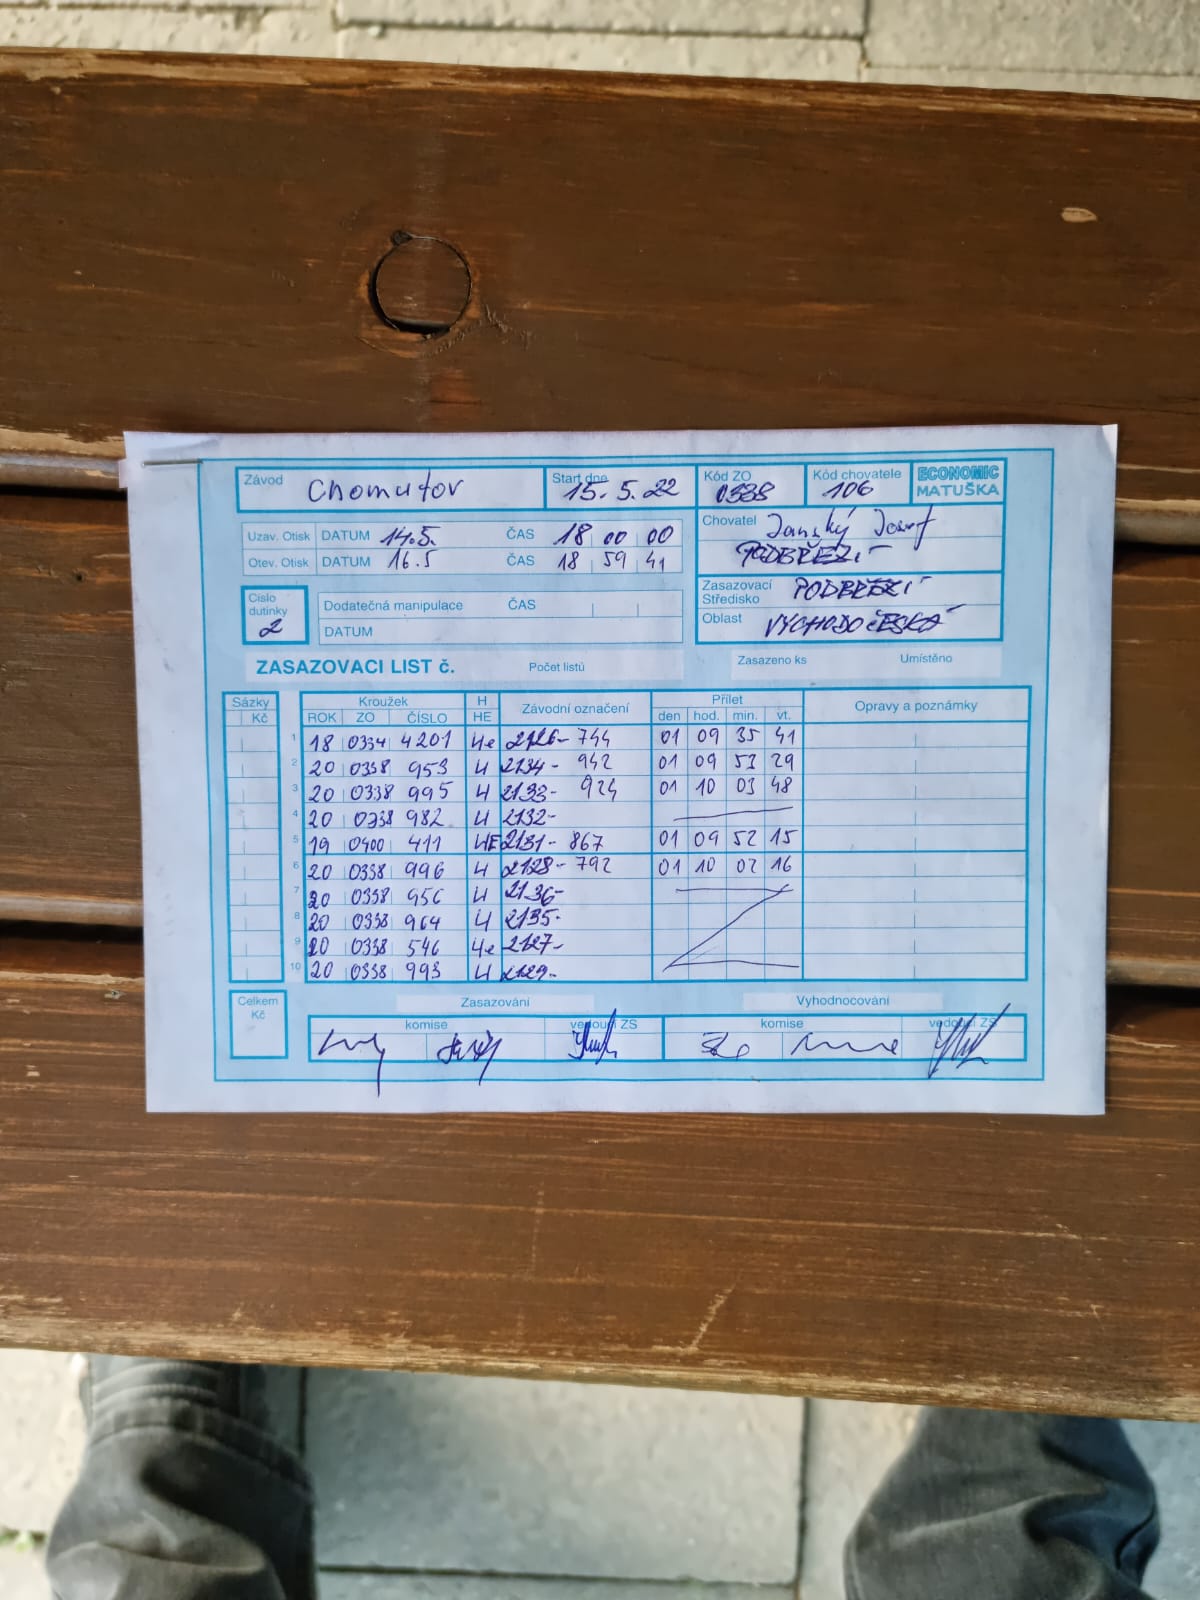 Závod Chomutov Start dne 15. 5. 22 Kód ZO 0338 Kód chovatele 106 ECONOMIC MATUŠKA
Uzav. Otisk DATUM 14.5. ČAS 18 00 00
Otev. Otisk DATUM 16.5 ČAS 18 59 41
Chovatel Janský Josef
PODBŘEZÍ
Číslo dutinky 2
Dodatečná manipulace ČAS
DATUM
Zasazovací Středisko PODBŘEZÍ
Oblast VÝCHODOČESKÁ
ZASAZOVACI LIST č. Počet listů Zasazeno ks Umístěno
Sázky Kroužek H Závodní označení Přílet Opravy a poznámky
Kč ROK ZO ČÍSLO HE den hod. min. vt.
1 18 0334 4201 He 2126- 744 01 09 35 41
2 20 0338 953 H 2134- 942 01 09 53 29
3 20 0338 995 H 2133- 924 01 10 03 48
4 20 0338 982 H 2132-
5 19 0400 411 HE 2131- 867 01 09 52 15
6 20 0338 996 H 2128- 792 01 10 02 16
7 20 0338 956 H 2136-
8 20 0338 964 H 2135-
9 20 0338 546 He 2127-
10 20 0338 993 H 2129-
Celkem Kč Zasazování Vyhodnocování
komise vedoucí ZS komise vedoucí ZS